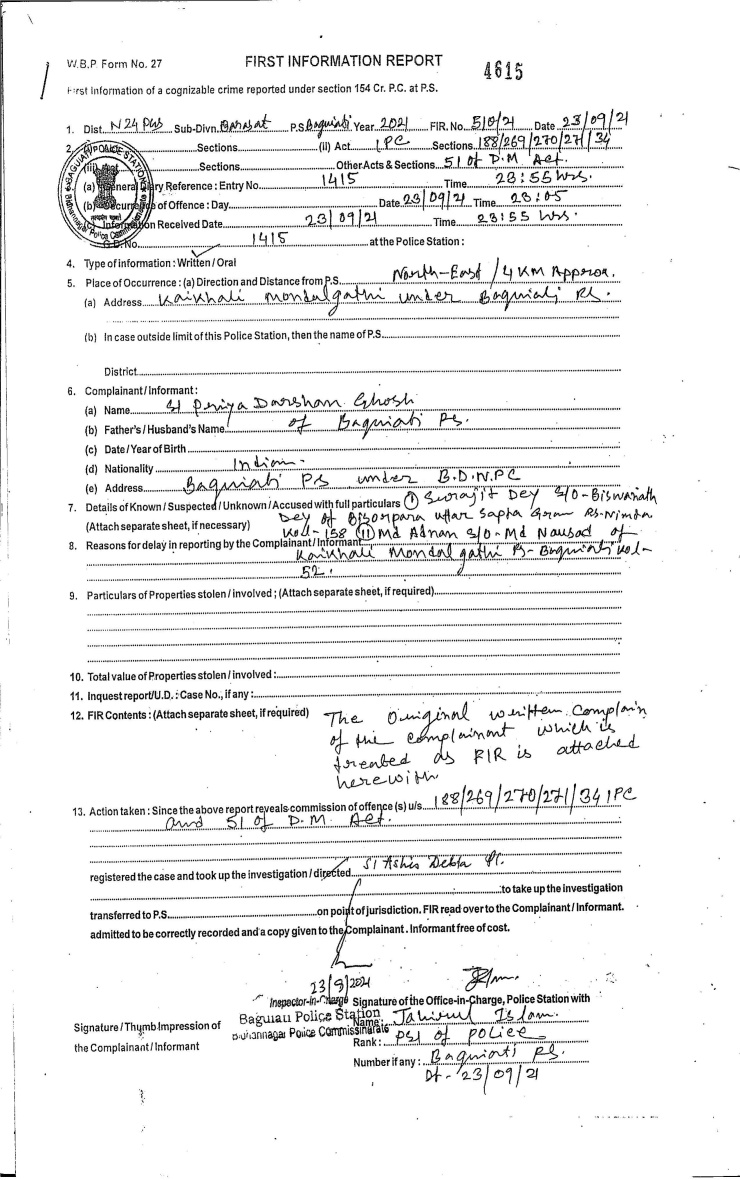 W.B.P. Form No. 27
FIRST INFORMATION REPORT
4615
First Information of a cognizable crime reported under section 154 Cr. P.C. at P.S.
1. Dist. N 24 PGS Sub-Divn. Barasat P.S Baguiati Year 2021 FIR. No. 510/21 Date 23/09/21
2. Sections (ii) Act IPC Sections 188/269/270/271/34
(iii) Act Sections Other Acts & Sections 51 of D.M Act.
(a) General Diary Reference : Entry No. 1415 Time 23:55 hrs.
(b) Occurrence of Offence : Day Date 23/09/21 Time 23:05
(c) Information Received Date 23/09/21 Time 23:55 hrs.
G.D. No. 1415 at the Police Station :
BAGUIATI POLICE STATION
Bidhannagar Police Commissionerate
सत्यमेव जयते
4. Type of information : Written / Oral
5. Place of Occurrence : (a) Direction and Distance from P.S. North-East / 4 KM Approx.
(a) Address Kaikhali Mondalgathi under Baguiati PS.
(b) In case outside limit of this Police Station, then the name of P.S.
District
6. Complainant / Informant :
(a) Name SI Periya Darshan Ghosh
(b) Father's / Husband's Name of Baguiati P.S.
(c) Date / Year of Birth
(d) Nationality Indian
(e) Address Baguiati PS under B.D.N.PC
7. Details of Known / Suspected / Unknown / Accused with full particulars (I) Surajit Dey S/O-Biswanath
Dey of Bisorpara uttar Sapta Gram PS-Nimta
(Attach separate sheet, if necessary) Kol-158 (II) Md Adnan S/O-Md Nausad of
8. Reasons for delay in reporting by the Complainant / Informant Kaikhali Mondal gathi PS- Baguiati Kol-
52.
9. Particulars of Properties stolen / involved ; (Attach separate sheet, if required)
10. Total value of Properties stolen / involved :
11. Inquest report/U.D. : Case No., if any :
12. FIR Contents : (Attach separate sheet, if required) The Original written Complain
of the complainant which is
treated as FIR is attached
herewith
13. Action taken : Since the above report reveals commission of offence (s) u/s. 188/269/270/271/34 IPC
and 51 of D.M. Act.
registered the case and took up the investigation / directed SI Ashis Debta
to take up the investigation
transferred to P.S. on point of jurisdiction. FIR read over to the Complainant / Informant.
admitted to be correctly recorded and a copy given to the Complainant. Informant free of cost.
23/9/2021
Inspector-in-Charge
Baguiati Police Station
Bidhannagar Police Commissinorate
Signature of the Office-in-Charge, Police Station with
Name : Tahirul Islam.
Rank : PSI of police
Number if any : Baguiati PS.
Dt- 23/09/21
Signature / Thumb Impression of
the Complainant / Informant